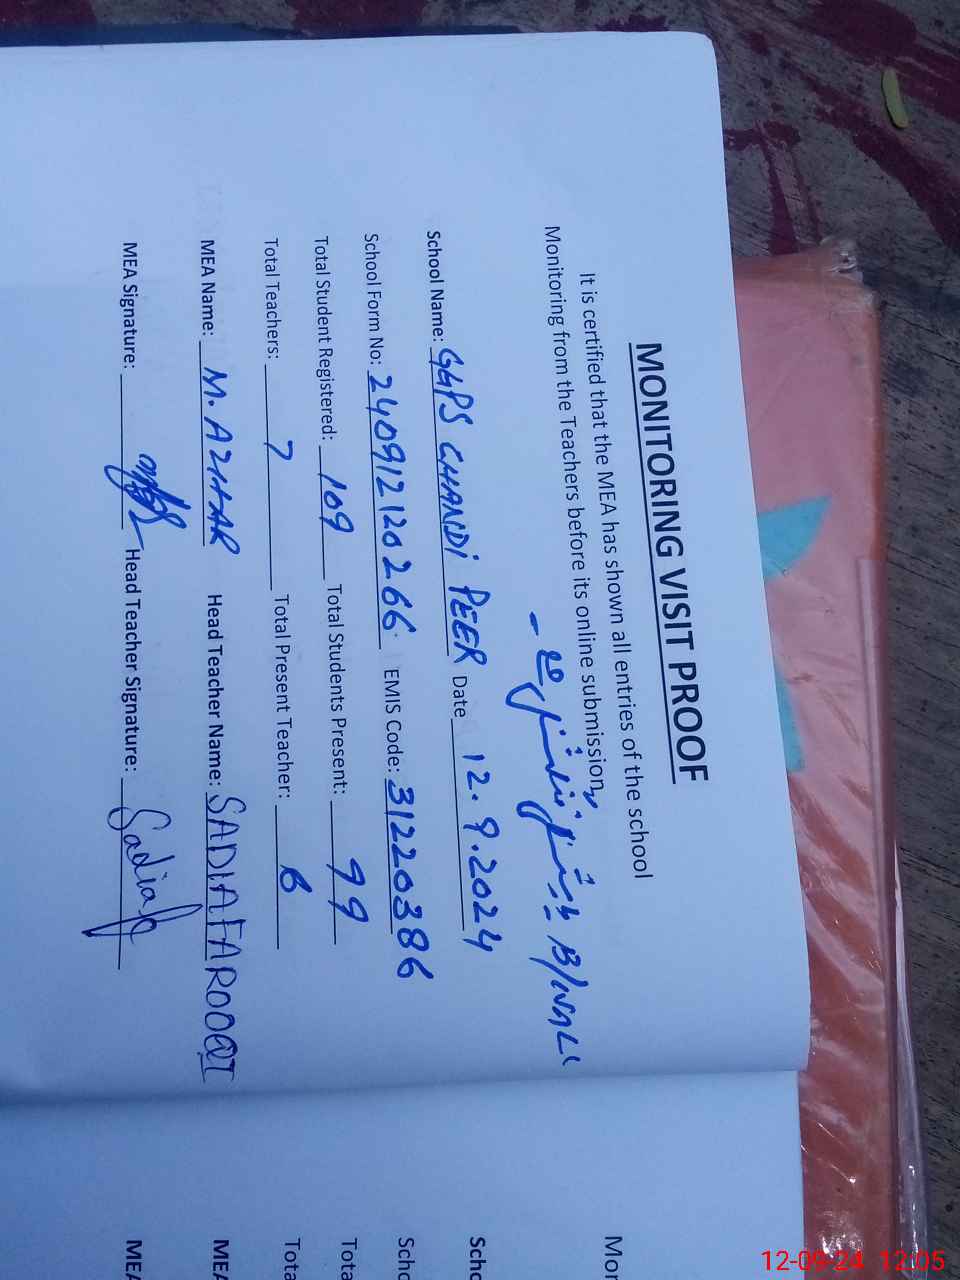 MONITORING VISIT PROOF
It is certified that the MEA has shown all entries of the school
Monitoring from the Teachers before its online submission,
School Name: GGPS CHANDI PEER Date 12.9.2024
School Form No: 240912120266 EMIS Code: 31220386
Total Student Registered: 109 Total Students Present: 99
Total Teachers: 7 Total Present Teacher: 6
MEA Name: M. AZHAR Head Teacher Name: SADIA FAROOQI
MEA Signature: Head Teacher Signature: Sadia
Mon
Scho
Scho
Tota
Tota
MEA
MEA
12-09-24 12:05